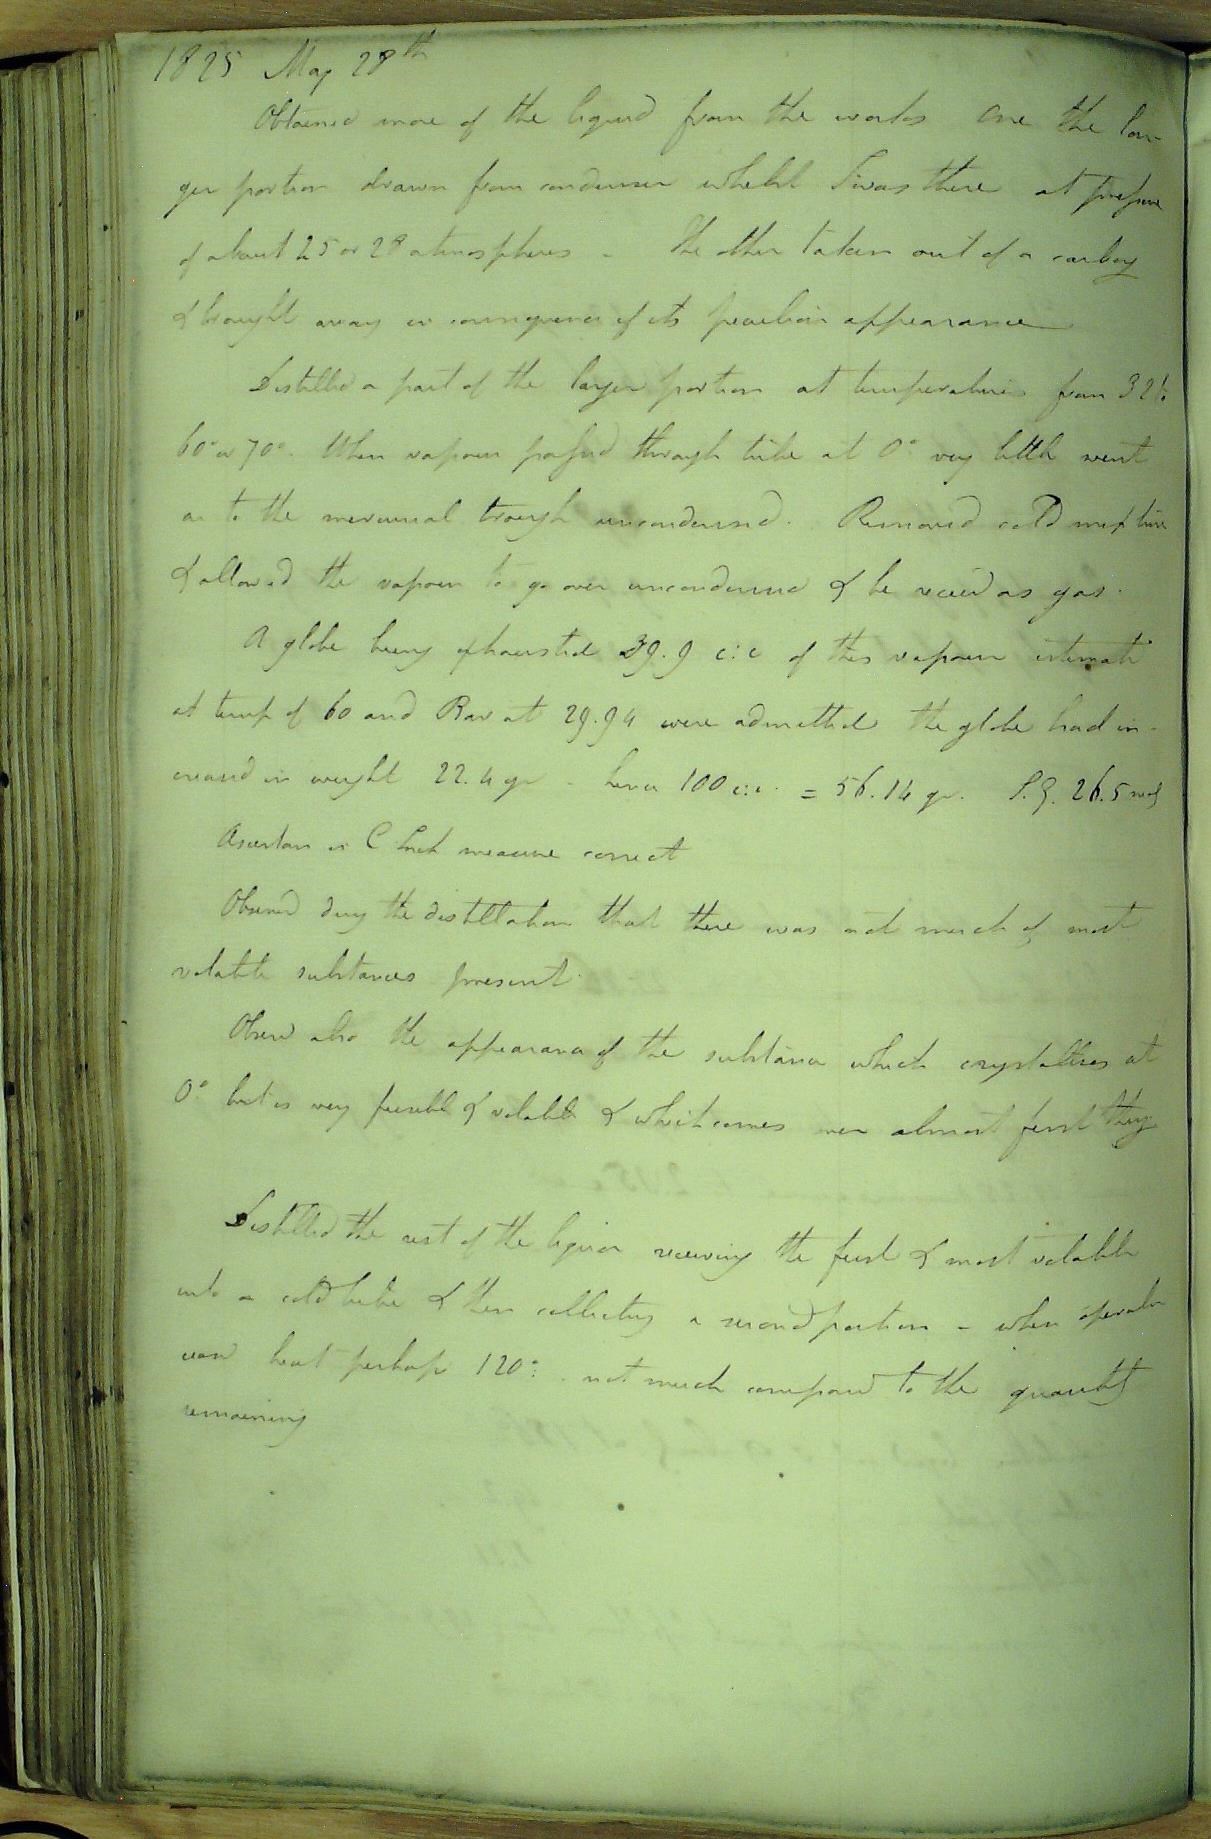 1825 May 28th
Obtained more of the liquid from the works One the lar-
ger portion drawn from condenser whilst I was there at pressure
of about 25 or 28 atmospheres - the other taken out of a carboy
& brought away in consequence of its peculiar appearance
Distilled a part of the larger portion at temperatures from 32 to
60° or 70°. When vapour passed through tube at 0° very little went
on to the mercurial trough uncondensed. Removed cold mixture
& allowed the vapour to go over uncondensed & be recevd as gas.
A globe being exhausted 39.9 c:i of this vapour estimate
at temp of 60 and Bar at 29.94 were admitted the globe had in-
creased in weight 22.4 gr - hence 100 c:i. = 56.14 gr. S.G. 26.5 nearly
Ascertain if C Inch measure correct
Observd during the distillation that there was not much of most
volatile substances present.
Observd also the appearance of the substance which crystallises at
0° but is very fusible & volatile & which comes over almost first thing
Distilled the rest of the liquor receiving the first & most volatile
into a cold tube & then collecting a second portion - when operation
ceased heat perhaps 120°. not much compared to the quantity
remaining